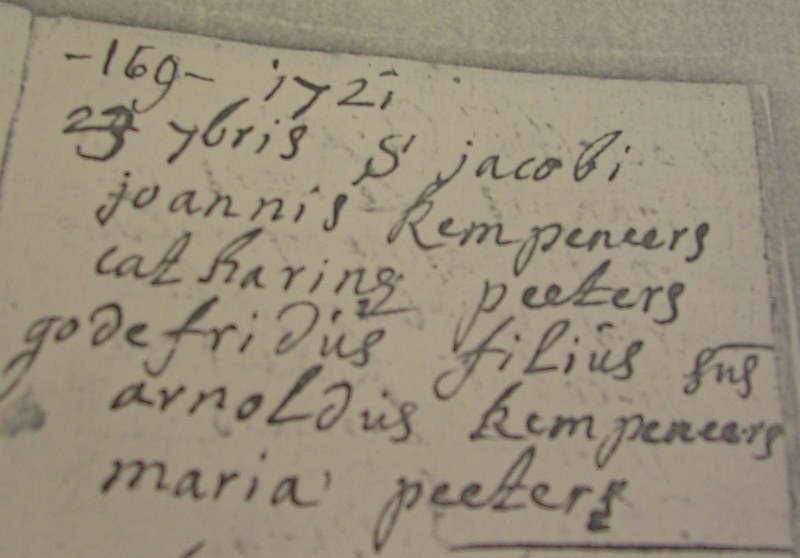 -169- i72i
23 7bris S jacobi
joannis kempeneers
catharinæ peeters
godefridus filius sus
arnoldus kempeneers
maria peeters